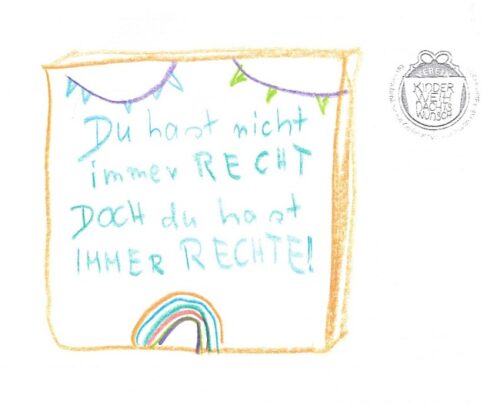 Du hast nicht
immer RECHT
DOCH du hast
IMMER RECHTE!
VEREIN
KINDER
WELT
WUNSCH